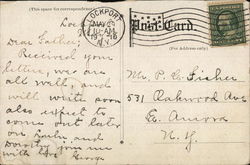 (This space for correspondence)
LOCKPORT
N.Y.
Post Card.
(For Address only)
Dear Father;
Received your
letter, we are
all well, and
will write soon
also expect to
come out later
on
and
Dorothy join me
with love George
Mr. P. C. Fisher
531 Oakwood Ave
E. Aurora
N.Y.